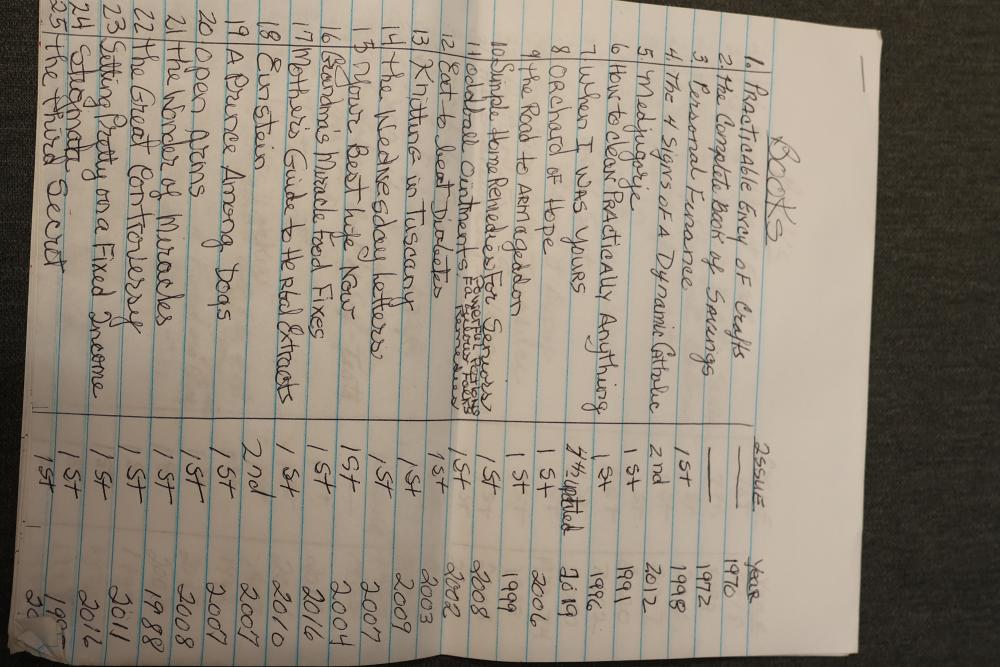 BOOKS
ISSUE Year
1. Practicable Ency of Crafts — 1970
2. The Complete Book of Savings — 1972
3 Personal Finance 1st 1998
4. The 4 Signs of A Dynamic Catholic 2nd 2012
5 Medjugorje 1st 1991
6 How to clean PRActically Anything 1st 1996
7 When I WAS YOURS 4th updated 2019
8 ORchard of Hope 1st 2006
9 the Road to ARmageddon 1st 1999
10 Simple Home Remedies For Seniors 1st 2008
11 Oddball Ointments Powerful Potions Fabulous Folks Remedies 1st 2002
12 Eat to beat Diabetes 1st 2003
13 Knitting in Tuscany 1st 2009
14 the Wednesday Letters 1st 2007
15 Your Best Life Now 1st 2004
16 Grandma's Miracle Food Fixes 1st 2016
17 Mother's Guide to Herbal Extracts 1st 2010
18 Einstein 2nd 2007
19 A Prince Among Dogs 1st 2007
20 Open Arms 1st 2008
21 the Wonder of Miracles 1st 1988
22 the Great Controversy 1st 2011
23 Getting Pretty on a Fixed Income 1st 2016
24 Stigmata 1st
25 the third Secret 1st